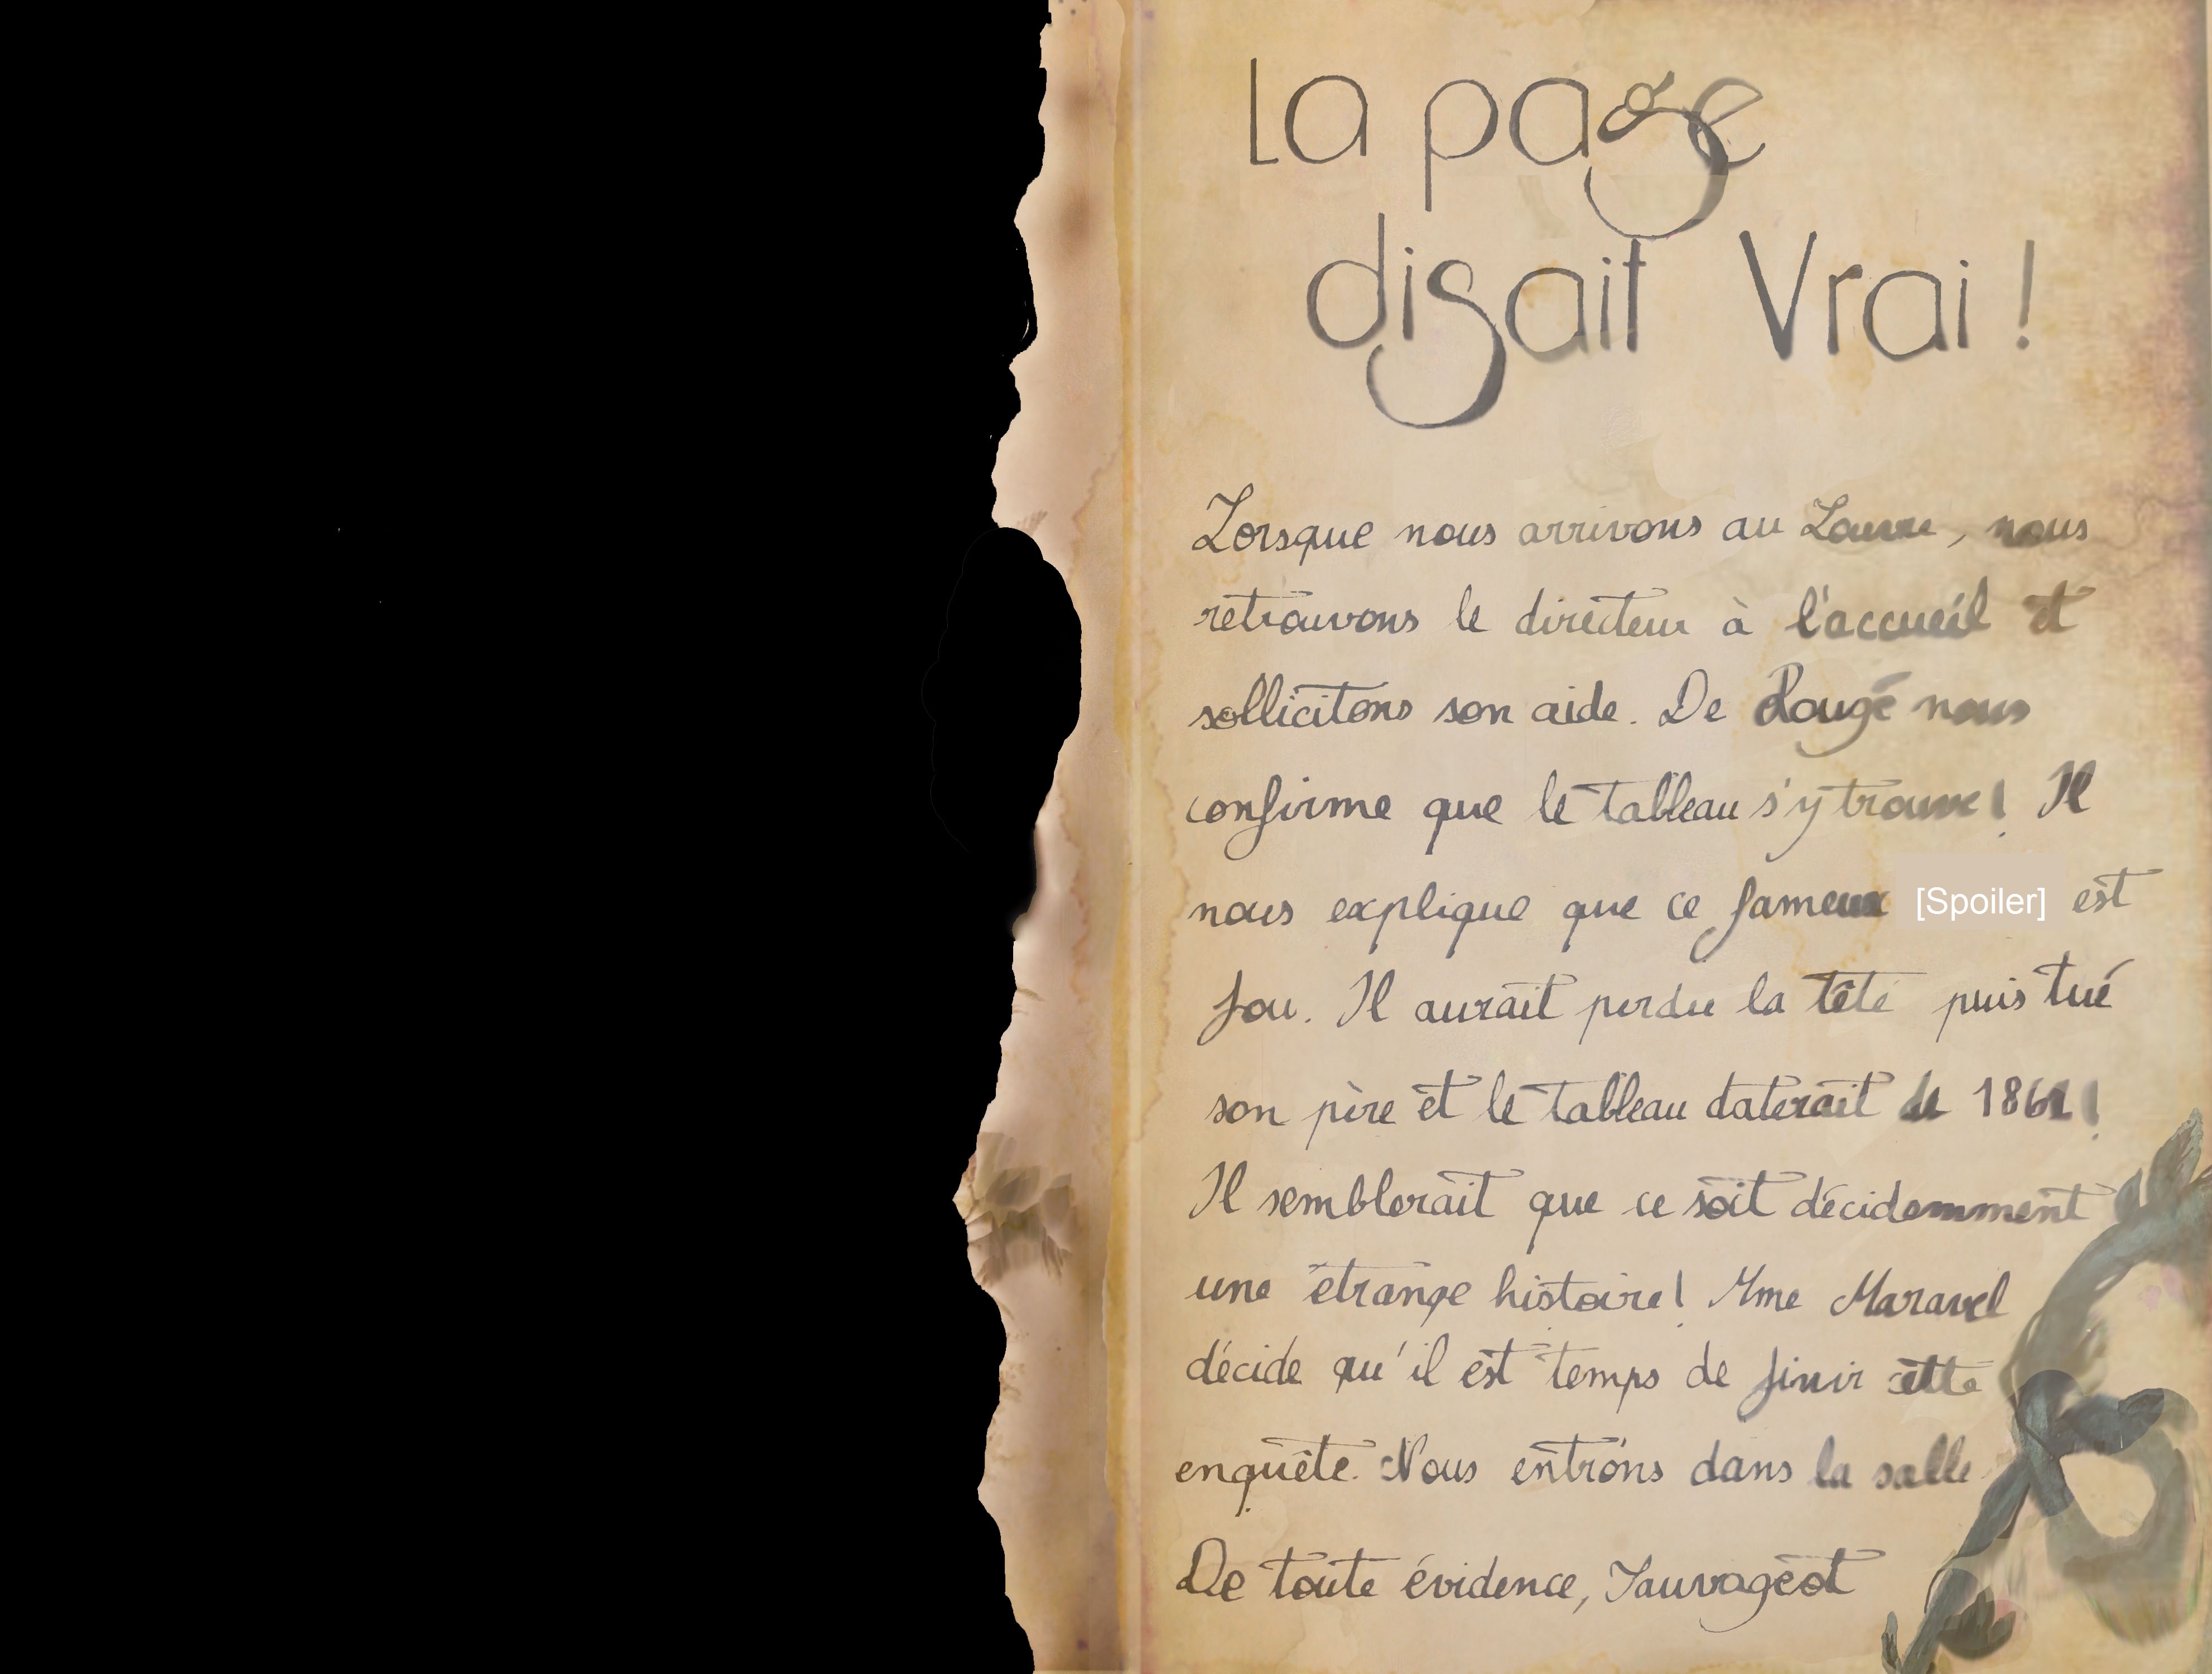 La page
disait Vrai !
Lorsque nous arrivons au Louvre, nous
retrouvons le directeur à l'accueil et
sollicitons son aide. De Rougé nous
confirme que le tableau s'y trouve ! Il
nous explique que ce fameux [Spoiler] est
fou. Il aurait perdu la tête puis tué
son père et le tableau daterait de !
Il semblerait que ce soit décidemment
une étrange histoire ! Mme Maravel
décide qu'il est temps de finir cette
enquête. Nous entrons dans la salle
De toute évidence, Sauvageot